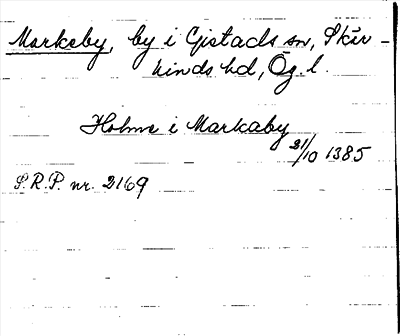 Markeby, by i Gistads sn, Skär-
kinds hd, Ög. l.
Holme i Markaby
21/10 1385
S.R.P. nr. 2169